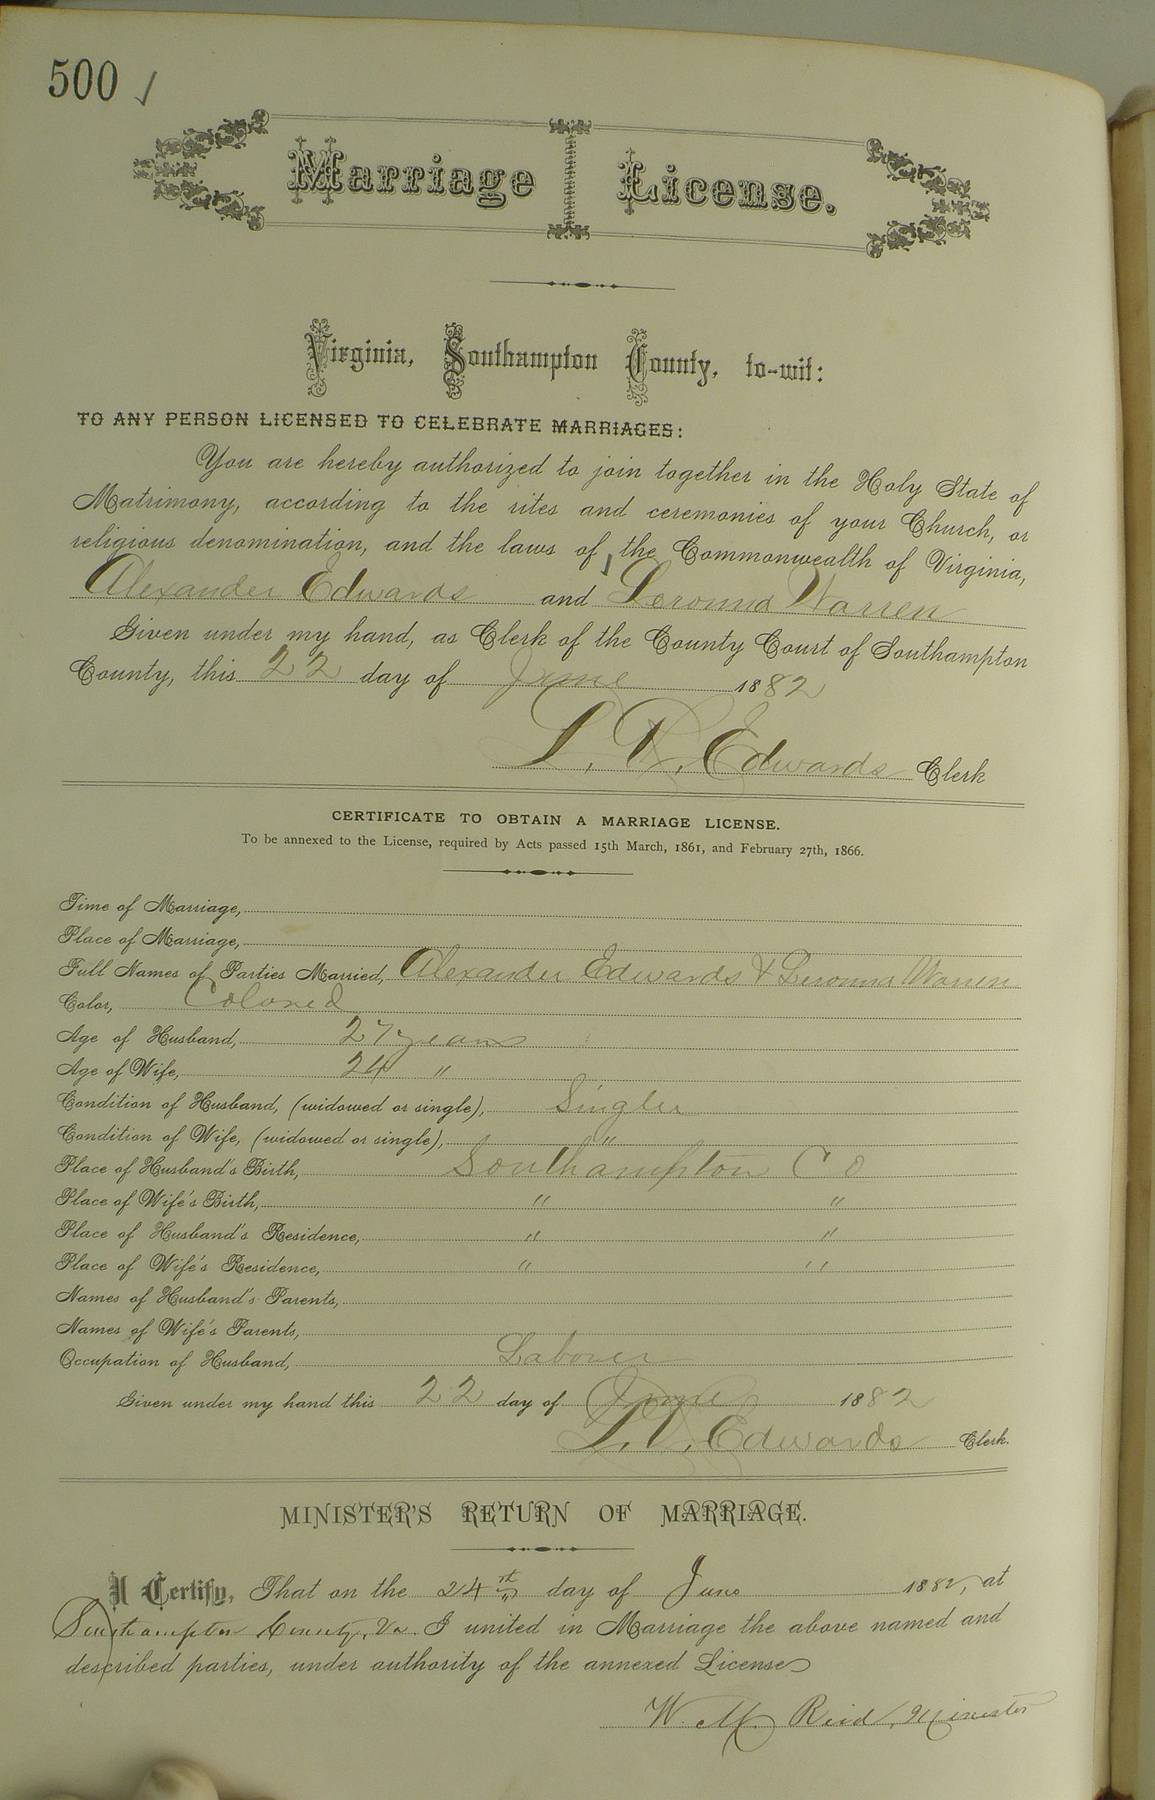 500 ✓
Marriage License.
Virginia, Southampton County, to-wit:
TO ANY PERSON LICENSED TO CELEBRATE MARRIAGES:
You are hereby authorized to join together in the Holy State of
Matrimony, according to the rites and ceremonies of your Church, or
religious denomination, and the laws of the Commonwealth of Virginia,
Alexander Edwards and Leronna Warren
Given under my hand, as Clerk of the County Court of Southampton
County, this 22 day of June 1882
L. R. Edwards Clerk
CERTIFICATE TO OBTAIN A MARRIAGE LICENSE.
To be annexed to the License, required by Acts passed 15th March, 1861, and February 27th, 1866.
Time of Marriage,
Place of Marriage,
Full Names of Parties Married, Alexander Edwards & Leronna Warren
Color, Colored
Age of Husband, 27 years
Age of Wife, 24 "
Condition of Husband, (widowed or single), Single
Condition of Wife, (widowed or single), "
Place of Husband's Birth, Southampton Co
Place of Wife's Birth, " "
Place of Husband's Residence, " "
Place of Wife's Residence, " "
Names of Husband's Parents,
Names of Wife's Parents,
Occupation of Husband, Laborer
Given under my hand this 22 day of June 1882
L. R. Edwards Clerk.
MINISTER'S RETURN OF MARRIAGE.
I Certify, That on the 24th day of June 1882, at
Southampton County, Va. I united in Marriage the above named and
described parties, under authority of the annexed License
W. M. Reid, Minister